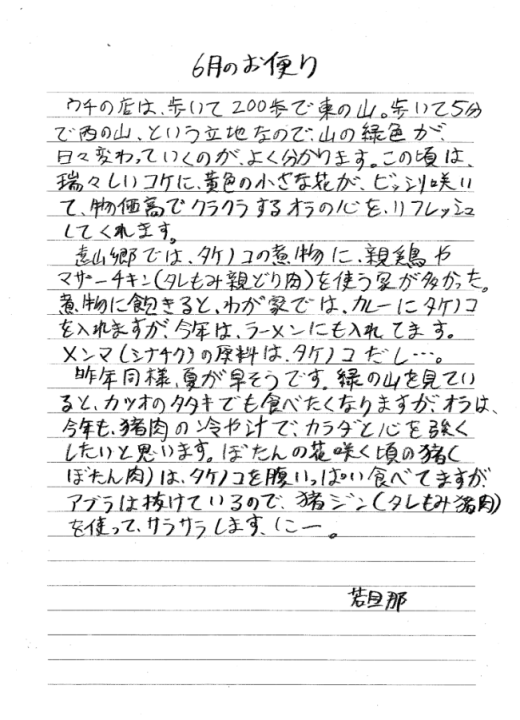 6月のお便り
ウチの店は、歩いて200歩で東の山。歩いて5分
で西の山、という立地なので、山の緑色が、
日々変わっていくのが、よく分かります。この頃は、
瑞々しいコケに、黄色の小さな花が、ビッシリ咲い
て、物価高でクラクラするオラの心を、リフレッシュ
してくれます。
遠山郷では、タケノコの煮物に、親鶏や
マザーチキン(タレもみ親どり肉)を使う家が多かった。
煮物に飽きると、わが家では、カレーにタケノコ
を入れますが、今年は、ラーメンにも入れてます。
メンマ(シナチク)の原料は、タケノコだし…。
昨年同様、夏が早そうです。緑の山を見てい
ると、カツオのタタキでも食べたくなりますが、オラは、
今年も、猪肉の冷や汁で、カラダと心を強く
したいと思います。ぼたんの花咲く頃の猪(
ぼたん肉)は、タケノコを腹いっぱい食べてますが、
アブラは抜けているので、猪ジン(タレもみ猪肉)
を使って、サラサラします、にー。
若旦那